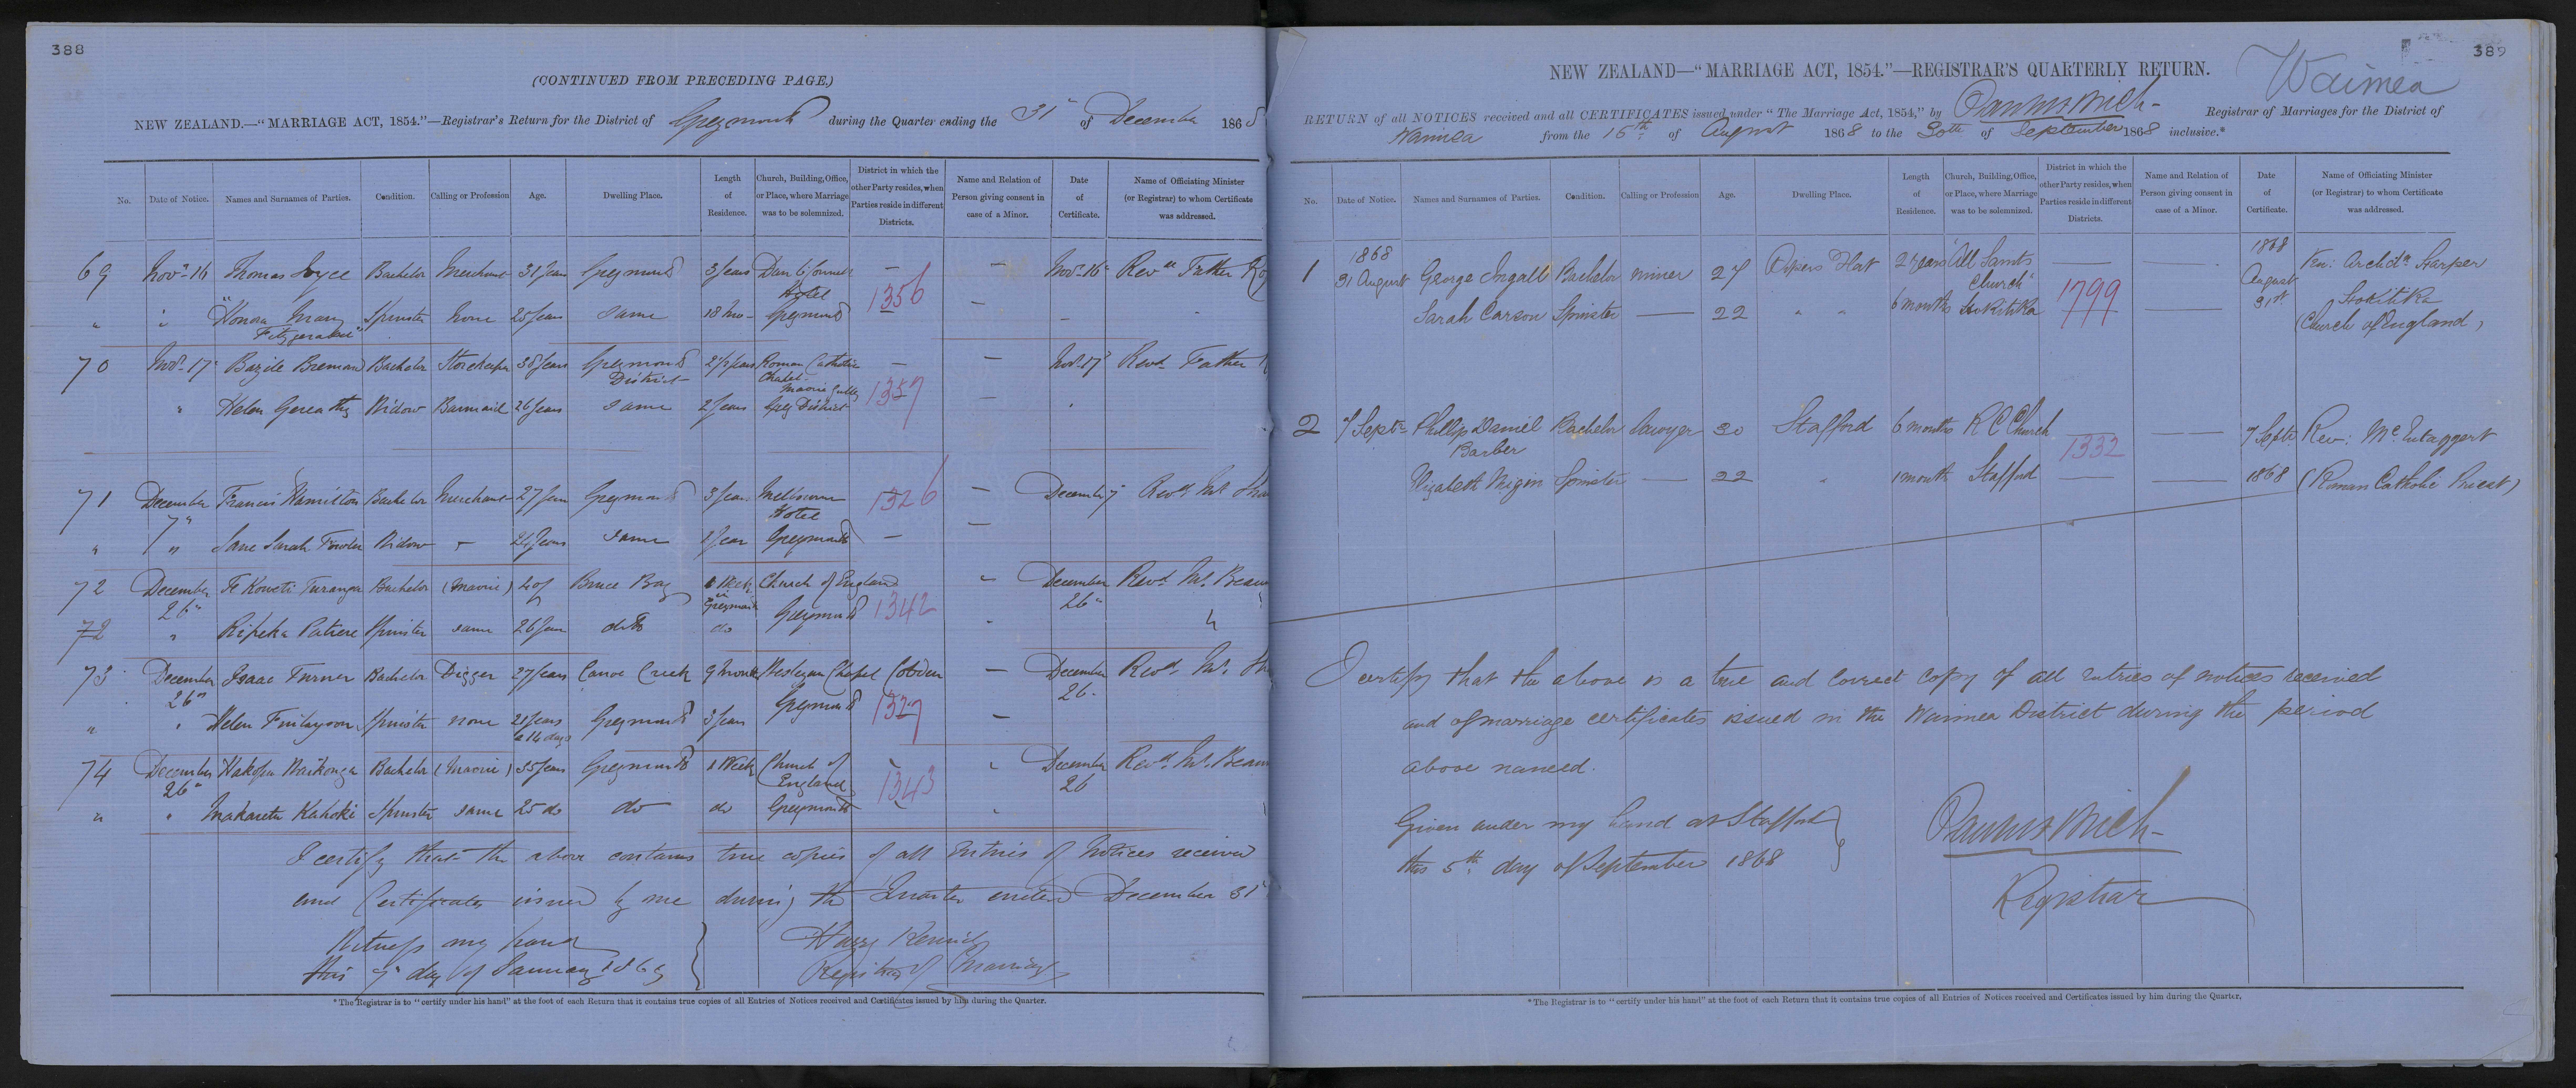 388
(CONTINUED FROM PRECEDING PAGE.)
NEW ZEALAND.—"MARRIAGE ACT, 1854."—Registrar's Return for the District of Greymouth during the Quarter ending the 31st of December 1868
No. Date of Notice. Names and Surnames of Parties. Condition. Calling or Profession Age. Dwelling Place. Length of Residence. Church, Building, Office, or Place, where Marriage was to be solemnized. District in which the other Party resides, when Parties reside in different Districts. Name and Relation of Person giving consent in case of a Minor. Date of Certificate. Name of Officiating Minister (or Registrar) to whom Certificate was addressed.
69 Novr 16 Thomas Joyce Bachelor Merchant 31 years Greymouth 3 years — — Novr 16 Revd Father
Hotel 1356
" " "Honora Mary Spinster None 25 years same 18 mo Greymouth —
Fitzgerald"
70 Novr 17 Bazile Bachelor Storekeeper 38 years Greymouth 2½ years Roman Catholic — — Novr 17 Revd Father
District Chapel
Maori Gully 1357
" Helen Widow Barmaid 26 years same 2 years Grey District —
71 December Francis Hamilton Bachelor Merchant 27 years Greymouth 3 years Melbourne 1326 — December 7 Revd Mr
7" Hotel —
" " Jane Sarah Fowler Widow — 24 years same 1 year Greymouth —
72 December Te Koweti Turanga Bachelor (Maori) 40 Bruce Bay 1 Week Church of England " December Revd Mr
26" in Greymouth 1342 26"
72 " Ripeka Patiere Spinster same 26 years ditto do Greymouth
73 December Isaac Turner Bachelor Digger 27 years Canoe Creek 9 months Wesleyan Chapel Cobden — December Revd Mr
26" Greymouth 1327 26
" " Helen Finlayson Spinster none 21 years Greymouth 3 years —
& 14 days
74 December Bachelor (Maori) 35 years Greymouth 1 Week Church of December Revd Mr
26" England 1343 26
" " Makareta Kahoki Spinster same 25 do do do Greymouth
I certify that the above contains true copies of all Entries of Notices received
and Certificates issued by me during the Quarter ended December 31st
Witness my hand
this 7th day of January 1869
Harry Kenrick
Registrar of Marriages
*The Registrar is to "certify under his hand" at the foot of each Return that it contains true copies of all Entries of Notices received and Certificates issued by him during the Quarter.
389
Waimea
NEW ZEALAND—"MARRIAGE ACT, 1854."—REGISTRAR'S QUARTERLY RETURN.
RETURN of all NOTICES received and all CERTIFICATES issued under "The Marriage Act, 1854," by Registrar of Marriages for the District of
Waimea from the 16th of August 1868 to the 30th of September 1868 inclusive.*
No. Date of Notice. Names and Surnames of Parties. Condition. Calling or Profession Age. Dwelling Place. Length of Residence. Church, Building, Office, or Place, where Marriage was to be solemnized. District in which the other Party resides, when Parties reside in different Districts. Name and Relation of Person giving consent in case of a Minor. Date of Certificate. Name of Officiating Minister (or Registrar) to whom Certificate was addressed.
1868 1868
1 31 August George Ingall Bachelor miner 27 Flat 2 years "All Saints — — August Ven: Archdn Harper
Church" 1799 31st Hokitika
Sarah Carson Spinster — 22 " " 6 months Hokitika — — (Church of England)
2 7 Septr Phillip Daniel Bachelor Sawyer 30 Stafford 6 months R C Church — 7 Septr Rev: McEntaggert
Barber 1332
Elizabeth Spinster — 22 " 1 month Stafford — — 1868 (Roman Catholic Priest)
I certify that the above is a true and correct copy of all entries of notices received
and of marriage certificates issued in the Waimea District during the period
above named.
Given under my hand at Stafford
this 5th day of September 1868
Registrar
*The Registrar is to "certify under his hand" at the foot of each Return that it contains true copies of all Entries of Notices received and Certificates issued by him during the Quarter.